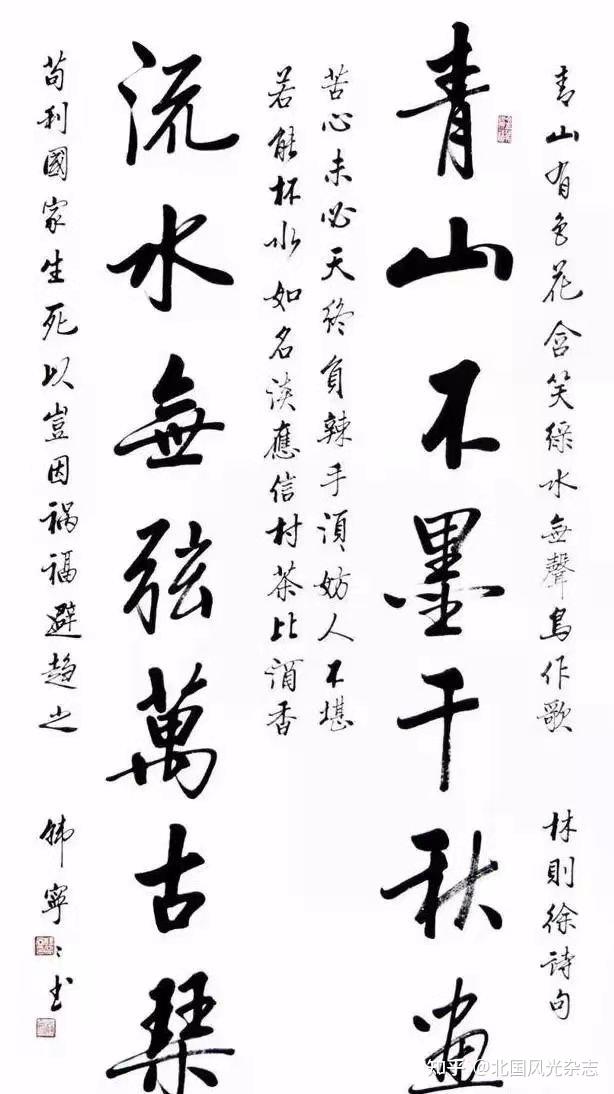 青山有色花含笑绿水無聲鳥作歌
林則徐詩句
青山不墨千秋畫
苦心未必天終負辣手須妨人不堪
若能杯水如名淡應信村茶比酒香
流水無弦萬古琴
苟利國家生死以豈因祸福避趋之
韩寧〻书
知乎 @北国风光杂志